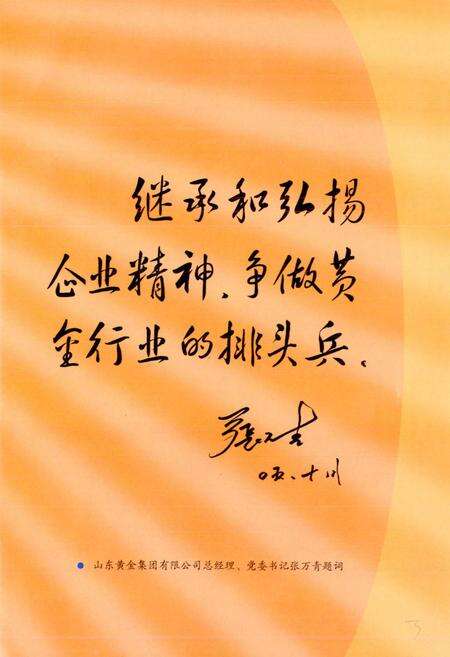 继承和弘揚
企业精神、争做黄
金行业的排头兵。
张万青
05.十月
山东黄金集团有限公司总经理、党委书记张万青题词